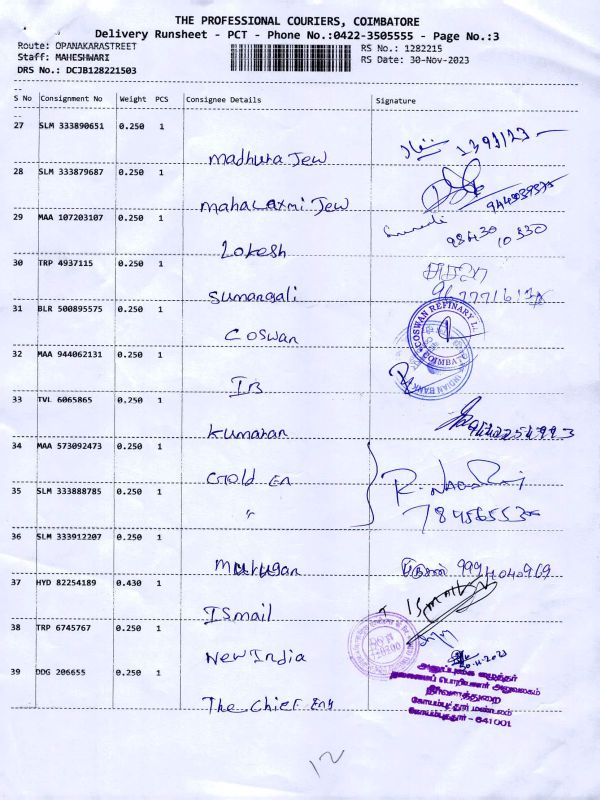 THE PROFESSIONAL COURIERS, COIMBATORE
Delivery Runsheet - PCT - Phone No.:0422-3505555 - Page No.:3
Route: OPANAKARASTREET
RS No.: 1282215
Staff: MAHESHWARI
RS Date: 30-Nov-2023
DRS No.: DCJB128221503
S No Consignment No Weight PCS Consignee Details Signature
27 SLM 333890651 0.250 1
Madhura Jew
28 SLM 333879687 0.250 1
Mahalaxmi Jew
29 MAA 107203107 0.250 1
Lokesh 98430 10330
30 TRP 4937115 0.250 1
Sumangali
31 BLR 500895575 0.250 1
Coswan COSWAN REFINARY COIMBATO
32 MAA 944062131 0.250 1
IB INDIAN BANK
33 TVL 6065865 0.250 1
Kumaran
34 MAA 573092473 0.250 1
Gold En
35 SLM 333888785 0.250 1
"
36 SLM 333912207 0.250 1
Murugan 9994040969
37 HYD 82254189 0.430 1
ISmail Ismail
38 TRP 6745767 0.250 1
New India
30-11-2023
39 DDG 206655 0.250 1
The Chief Eng
கோயம்புத்தூர் மண்டலம்
கோயம்புத்தூர் - 641001
12